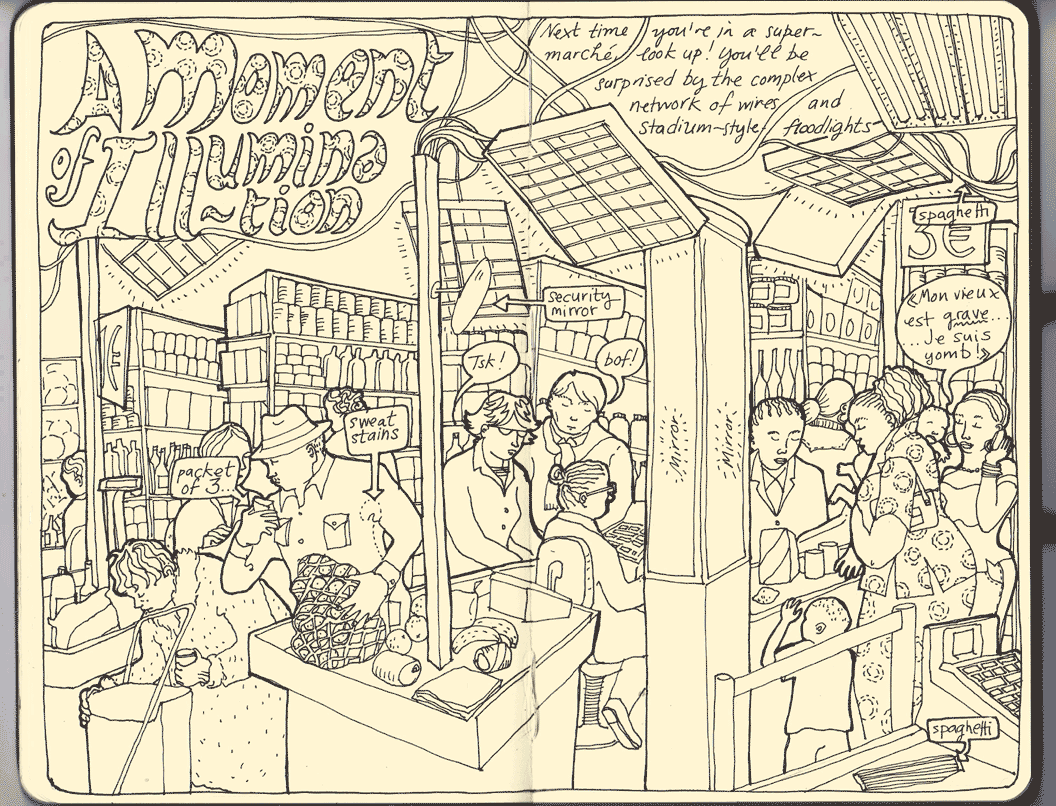 A Moment
of Illumina
-tion
Next time you're in a super-
marché, look up! You'll be
surprised by the complex
network of wires and
stadium-style floodlights
spaghetti
3€
security
mirror
«Mon vieux
est grave...
...Je suis
yomb!»
Tsk!
bof!
sweat
stains
packet
of 3.
€
Mirror
Mirror
spaghetti